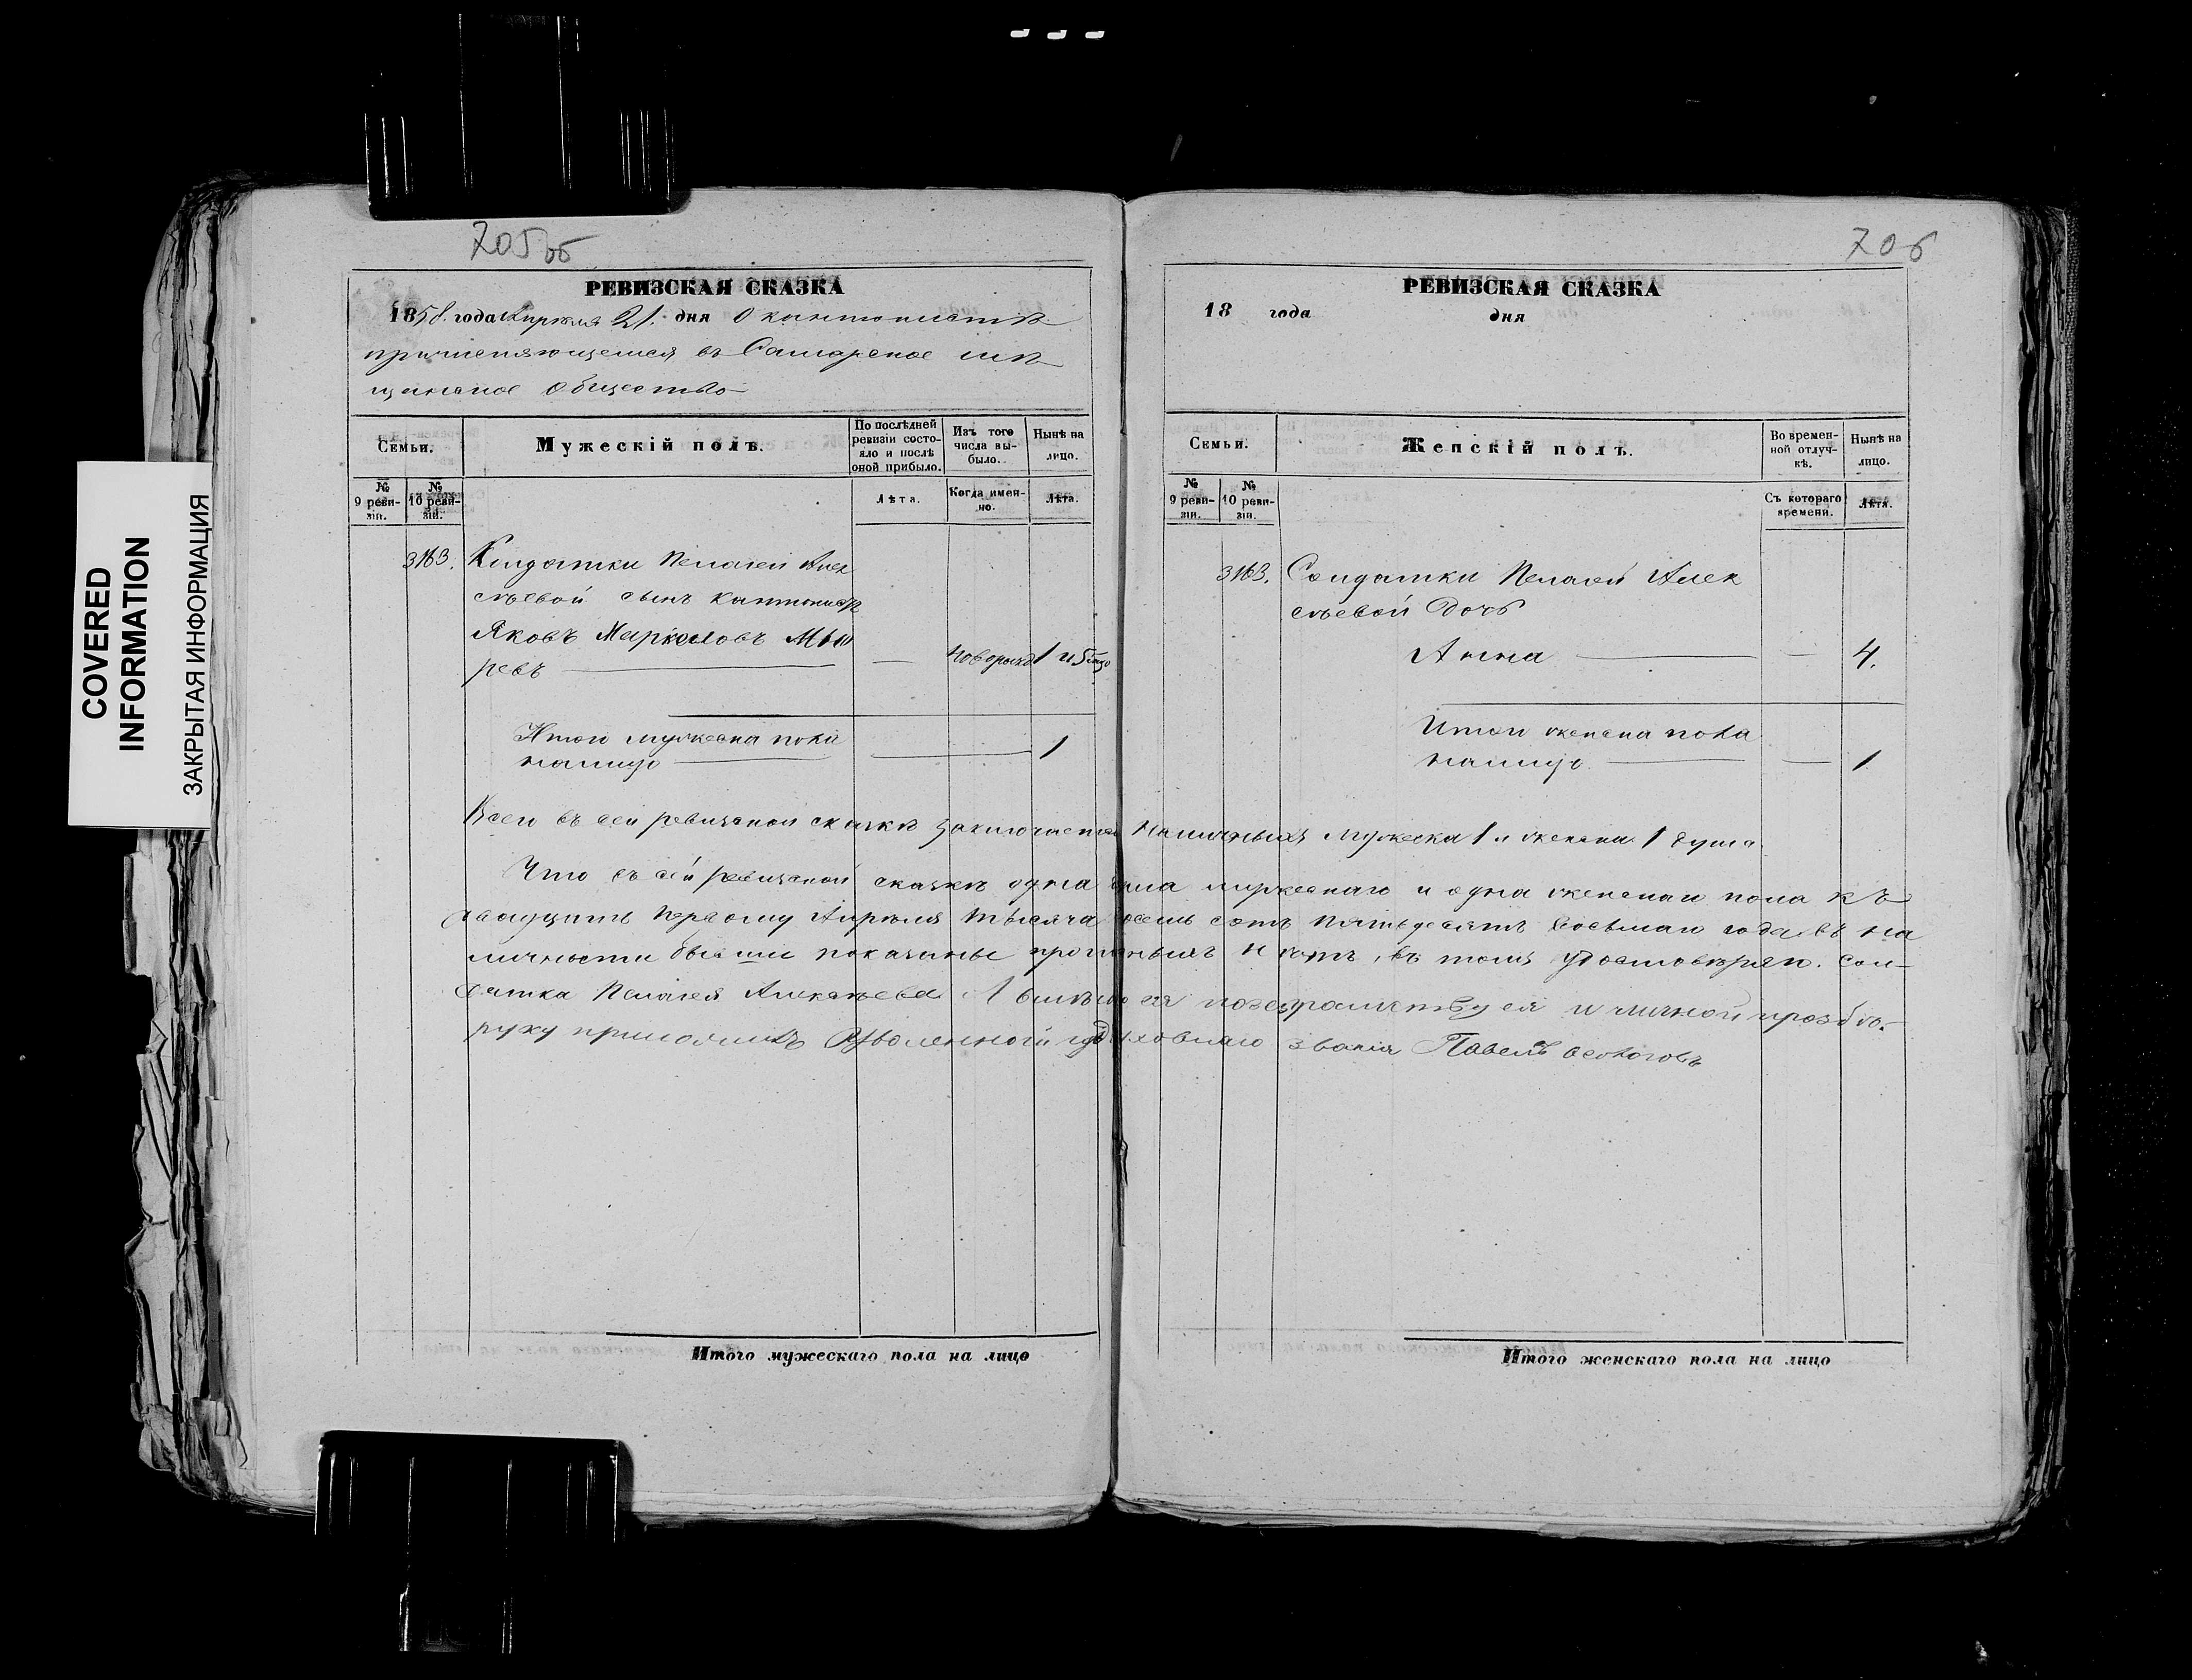 COVERED
INFORMATION
ЗАКРЫТАЯ ИНФОРМАЦИЯ
705об
РЕВИЗСКАЯ СКАЗКА
1858 года Апреля 21 дня О кантонистѣ
причисляющемся въ Самарское мѣ
щанское общество
Семьи.
Мужескій полъ.
По послѣдней ревизіи состояло и послѣ оной прибыло.
Изъ того числа выбыло.
Нынѣ на лицо.
№ 9 ревизіи.
№ 10 ревизіи.
Лѣта.
Когда именно.
Лѣта.
3163. Солдатки Пелагеи Алек
сѣевой сынъ кантонистъ
Яковъ
ревъ — новорожд 1
Итого мужеска пола
налицо — 1
706
РЕВИЗСКАЯ СКАЗКА
18 года дня
Семьи.
Женскій полъ.
Во временной отлучкѣ.
Нынѣ на лицо.
№ 9 ревизіи.
№ 10 ревизіи.
Съ котораго времени.
Лѣта.
3163. Солдатки Пелагеи Алек
сѣевой дочь
Анна — 4.
Итого женска пола
налицо — 1
Всего въ сей ревизской сказкѣ заключается наличныхъ мужеска 1 и женска 1 душа
Что въ сей ревизской сказкѣ одна душа мужескаго и одна женскаго пола къ
двадцать первому Апрѣля тысяча восемь сотъ пятьдесятъ восьмаго года въ на
личности бывшие показаны прописныхъ нѣтъ, въ томъ удостовѣряю. Сол-
датка Пелагея Алексѣева А вмѣсто ея неграмотству ея и личной прозбѣ
руку приложилъ Уволенной изъ духовнаго званія Павелъ
Итого мужескаго пола на лицо
Итого женскаго пола на лицо